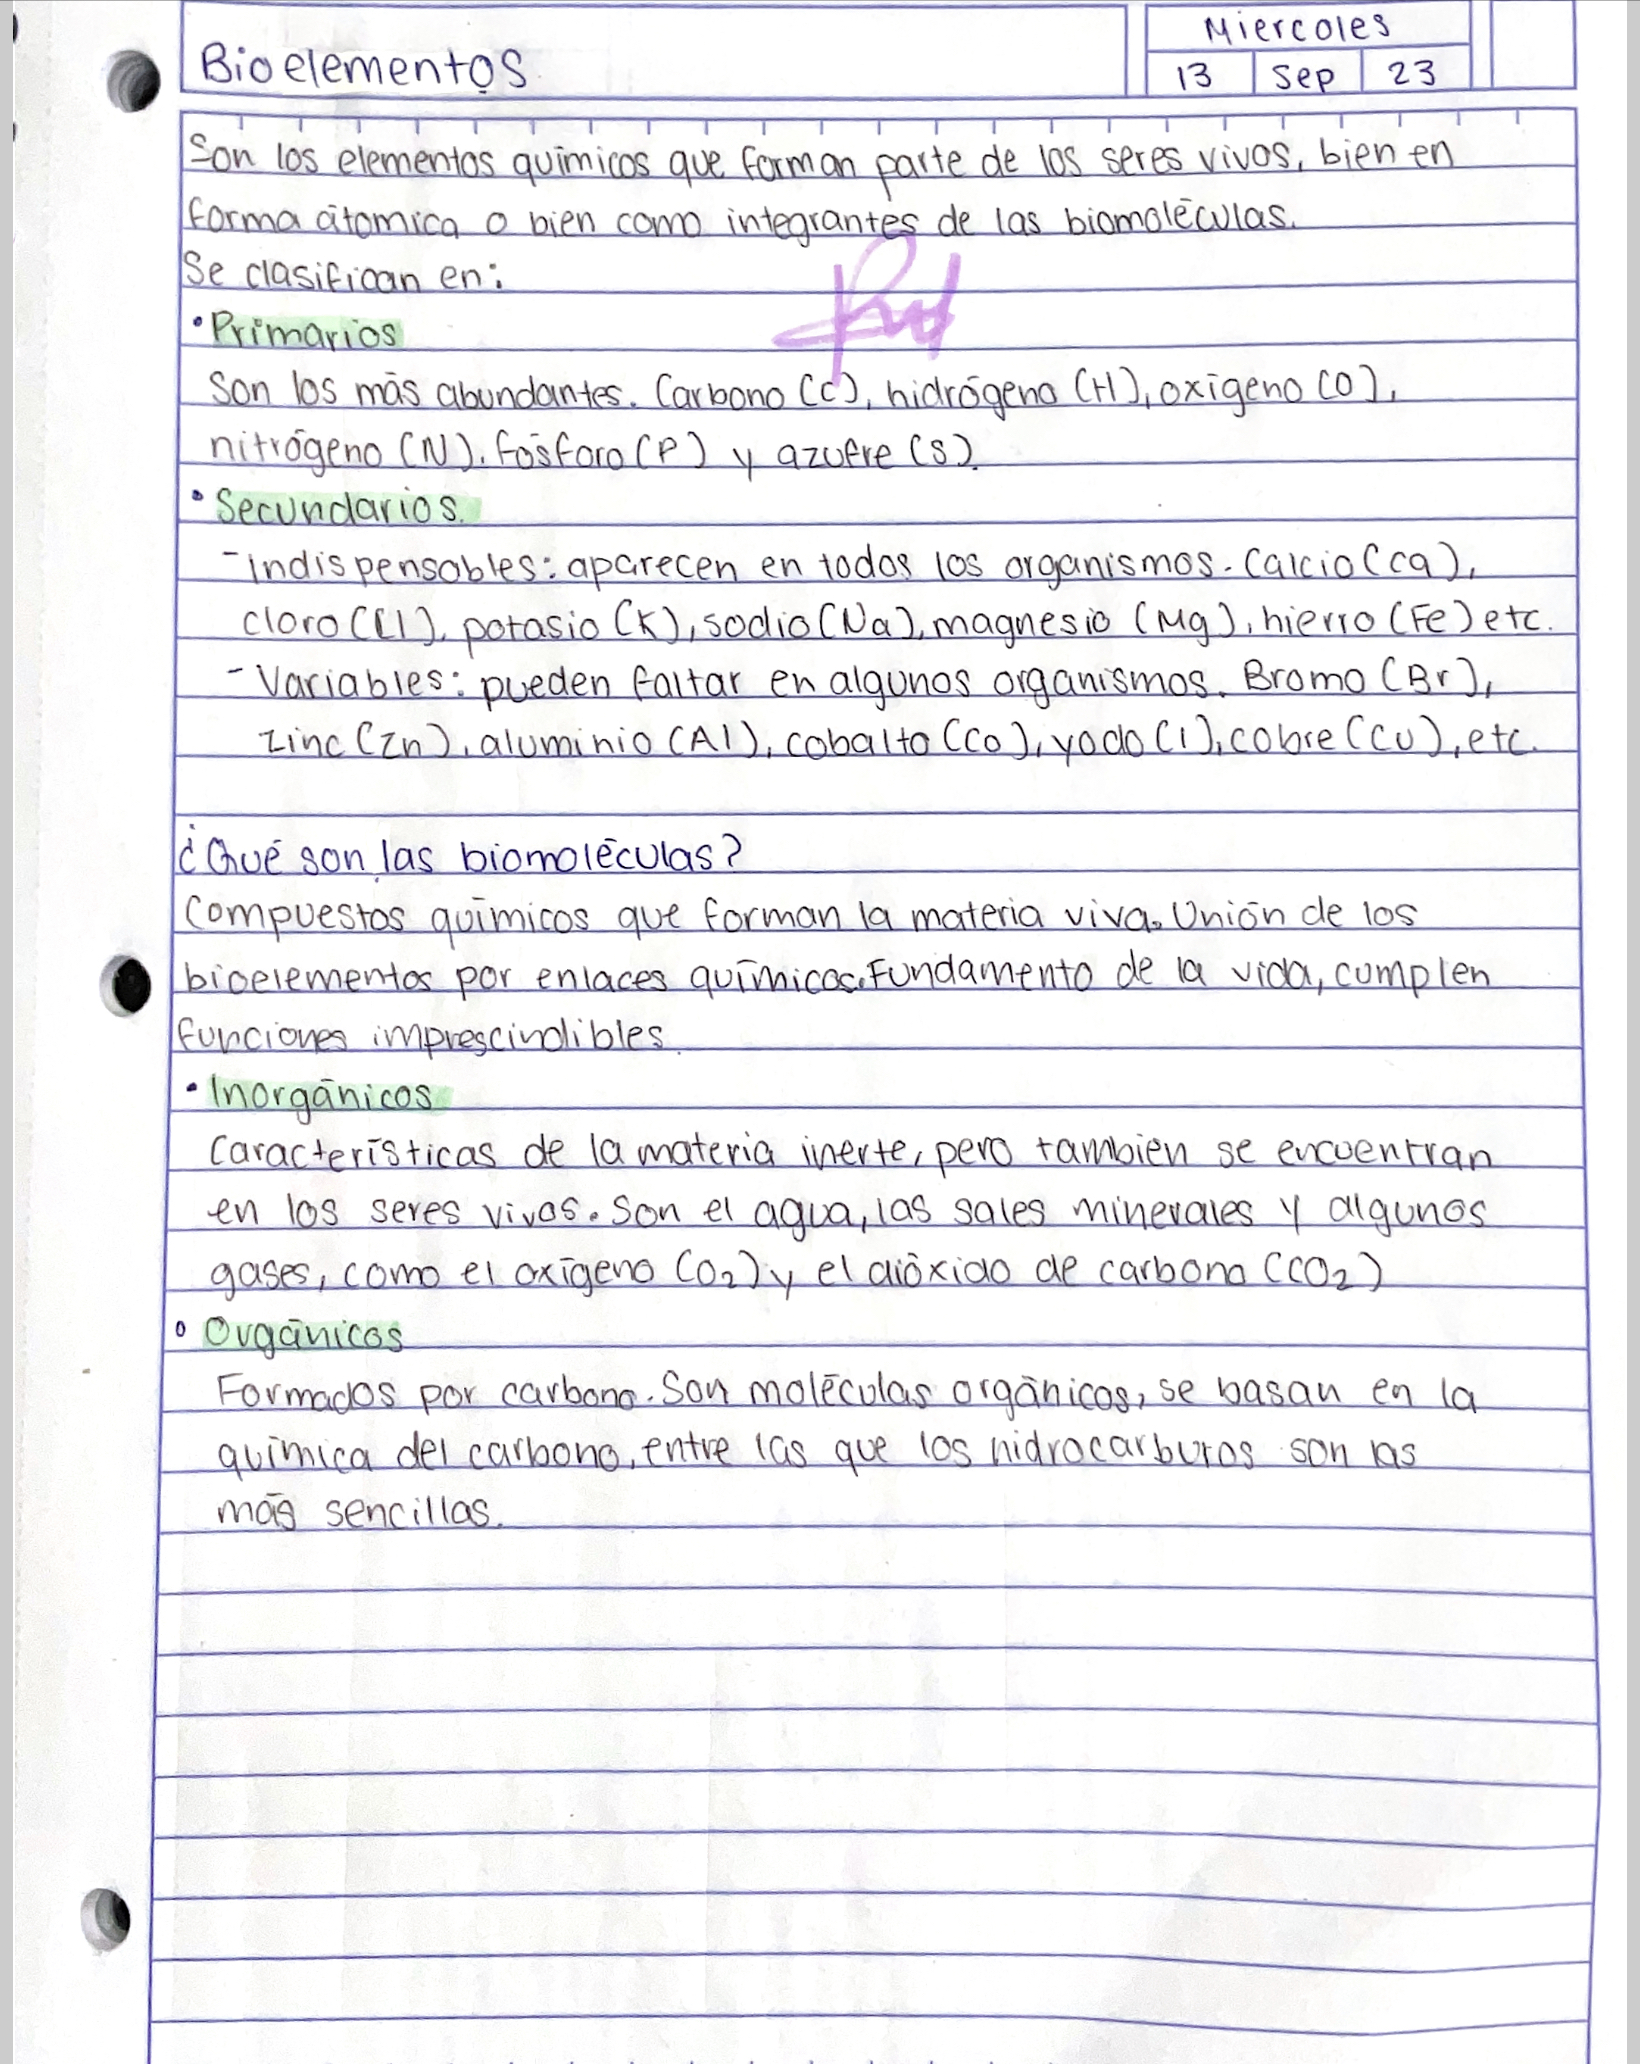 Bioelementos
Miercoles
13 Sep 23
Son los elementos químicos que forman parte de los seres vivos, bien en
forma átomica o bien como integrantes de las biomoléculas.
Se clasifican en:
•Primarios
Son los más abundantes. Carbono (C), hidrógeno (H), oxígeno (O),
nitrógeno (N). fósforo (P) y azufre (S).
•Secundarios.
-Indispensables: aparecen en todos los organismos. Calcio (Ca),
cloro (Cl), potasio (K), sodio (Na), magnesio (Mg), hierro (Fe) etc.
-Variables: pueden faltar en algunos organismos. Bromo (Br),
zinc (Zn), aluminio (Al), cobalto (Co), yodo (I), cobre (Cu), etc.
¿Qué son las biomoléculas?
Compuestos químicos que forman la materia viva. Unión de los
bioelementos por enlaces químicos. Fundamento de la vida, cumplen
funciones imprescindibles.
•Inorgánicos
Características de la materia inerte, pero tambien se encuentran
en los seres vivos. Son el agua, las sales minerales y algunos
gases, como el oxígeno (O₂) y el dióxido de carbono (CO₂)
•Orgánicos
Formados por carbono. Son moléculas orgánicos, se basan en la
química del carbono, entre las que los hidrocarburos son las
más sencillas.